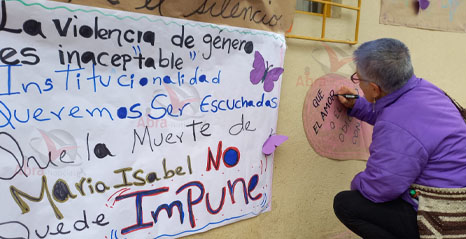 el silencio
La violencia de género
es inaceptable"
Institucionalidad
Queremos Ser Escuchadas
Que la Muerte de
Maria Isabel NO
Quede Impune
QUE
EL AMOR